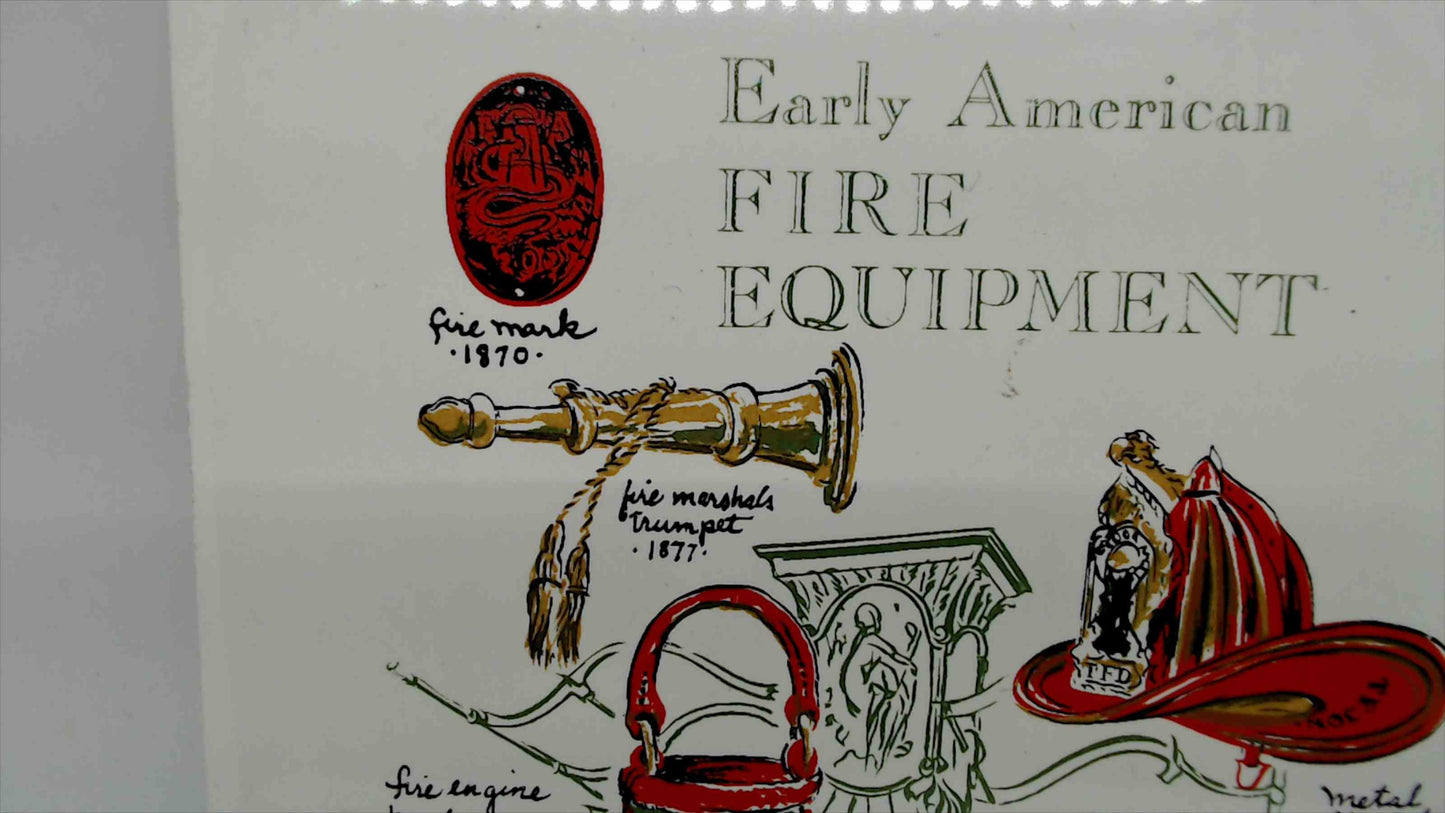 Early American
FIRE
EQUIPMENT
fire mark
·1870·
fire marshals
trumpet
·1877·
TFD
fire engine
Metal